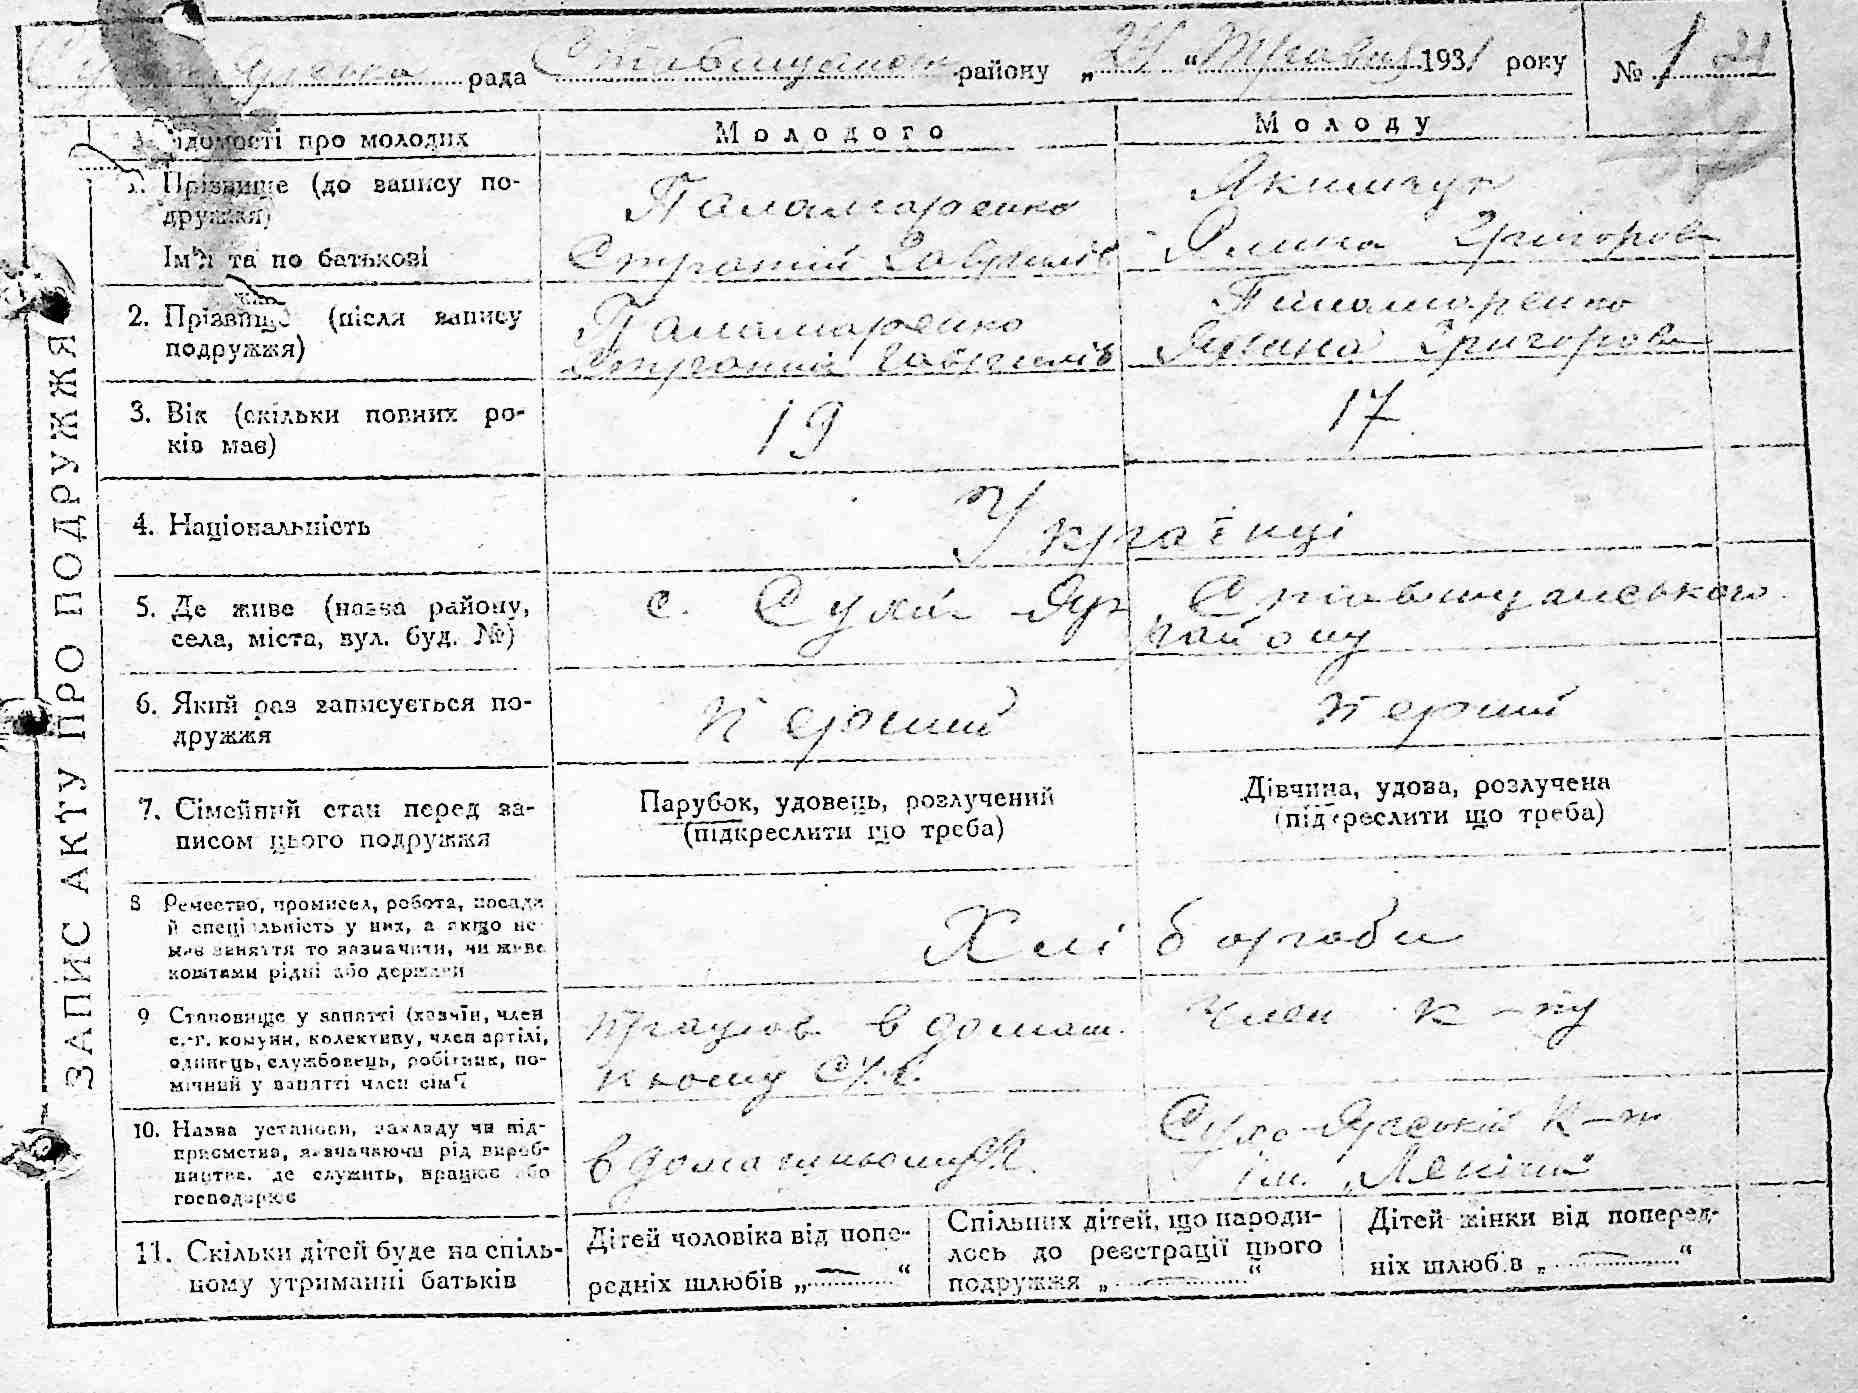 рада Ставищанськ району „24“ Травня 1931 року № 1
Відомості про молодих
Молодого
Молоду
1. Прізвище (до запису по-
дружжя)
Ім'я та по батькові
Паламаренко
Якимчук
Григоров
2. Прізвище (після запису
подружжя)
Паламаренко
Гаврилів
Паламаренко
Григоров
3. Вік (скільки повних ро-
ків має)
19
17
4. Національність
Українці
5. Де живе (назва району,
села, міста, вул. буд. №)
с. Сухий Яр Ставищанського
району
6. Який раз записується по-
дружжя
перший
перший
7. Сімейний стан перед за-
писом цього подружжя
Парубок, удовець, розлучений
(підкреслити що треба)
Дівчина, удова, розлучена
(підкреслити що треба)
8 Ремество, промисел, робота, посада
й спеціяльність у них, а якщо не
має заняття то зазначити, чи живе
коштами рідні або держави
Хлібороби
9 Становище у занятті (хазяїн, член
с.-г. комуни, колективу, член артілі,
одинець, службовець, робітник, по-
мічний у занятті член сім'ї
працює в домаш.
ньому
Член к-ву
10. Назва установи, закладу чи під-
приємства, зазначаючи рід вироб-
ництва, де служить, працює або
господарює
в домашньому
Сухо-Ярський к-в
ім. „Леніна“
11. Скільки дітей буде на спіль-
ному утриманні батьків
Дітей чоловіка від попе-
редніх шлюбів „—“
Спільних дітей, що народи-
лось до реєстрації цього
подружжя „—“
Дітей жінки від поперед-
ніх шлюбів „—“
ЗАПИС АКТУ ПРО ПОДРУЖЖЯ